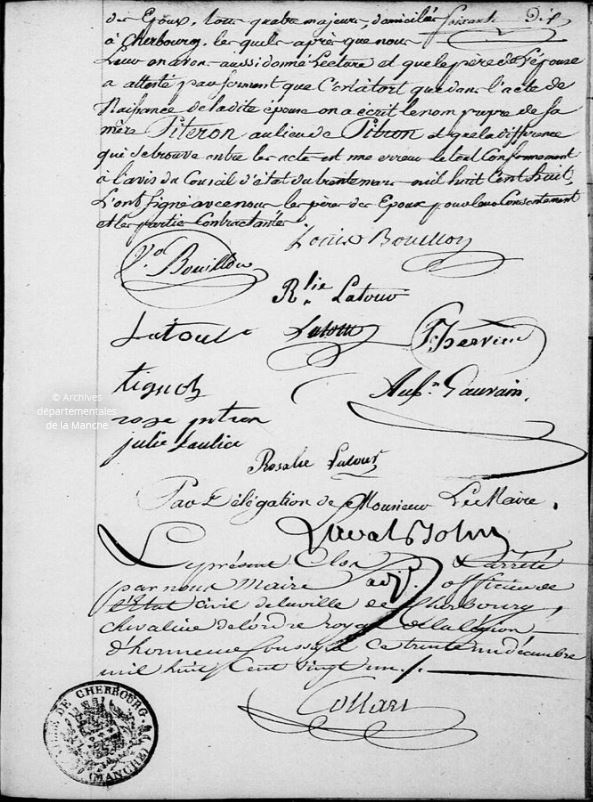 des Epoux, tous quatre majeurs, domiciliés
à Cherbourg, les quels après que nous
Leur en avons aussi donné Lecture et que le père de l'épouse
a attesté par serment que C'est à tort que dans l'acte de
Naissance de la dite épouse on a écrit le nom propre de sa
mère Piteron au lieu de Pitron et que la différence
qui se trouve entre les actes est une erreur le tout Conformément
à l'avis du Conseil d'état du trente mars mil huit Cent huit,
L'ont Signé avec nous les pères des Epoux pour leur Consentement
et les partie Contractantes
Louis Bouillon
Bouillon
Rlie Latour
Latour
Latour
© Archives
départementales
de la Manche
rose pitron
julie
Rosalie Latour
Par Délégation de Monsieur Le Maire.
Le présent Clos & arrêté
par nous Maire adjt. officier de
l'Etat Civil de la ville de Cherbourg,
chevalier de l'ordre royal de la légion
d'honneur soussigné Ce trente un décembre
mil huit Cent vingt un ./.
Collart
DE CHERBOURG
(MANCHE)